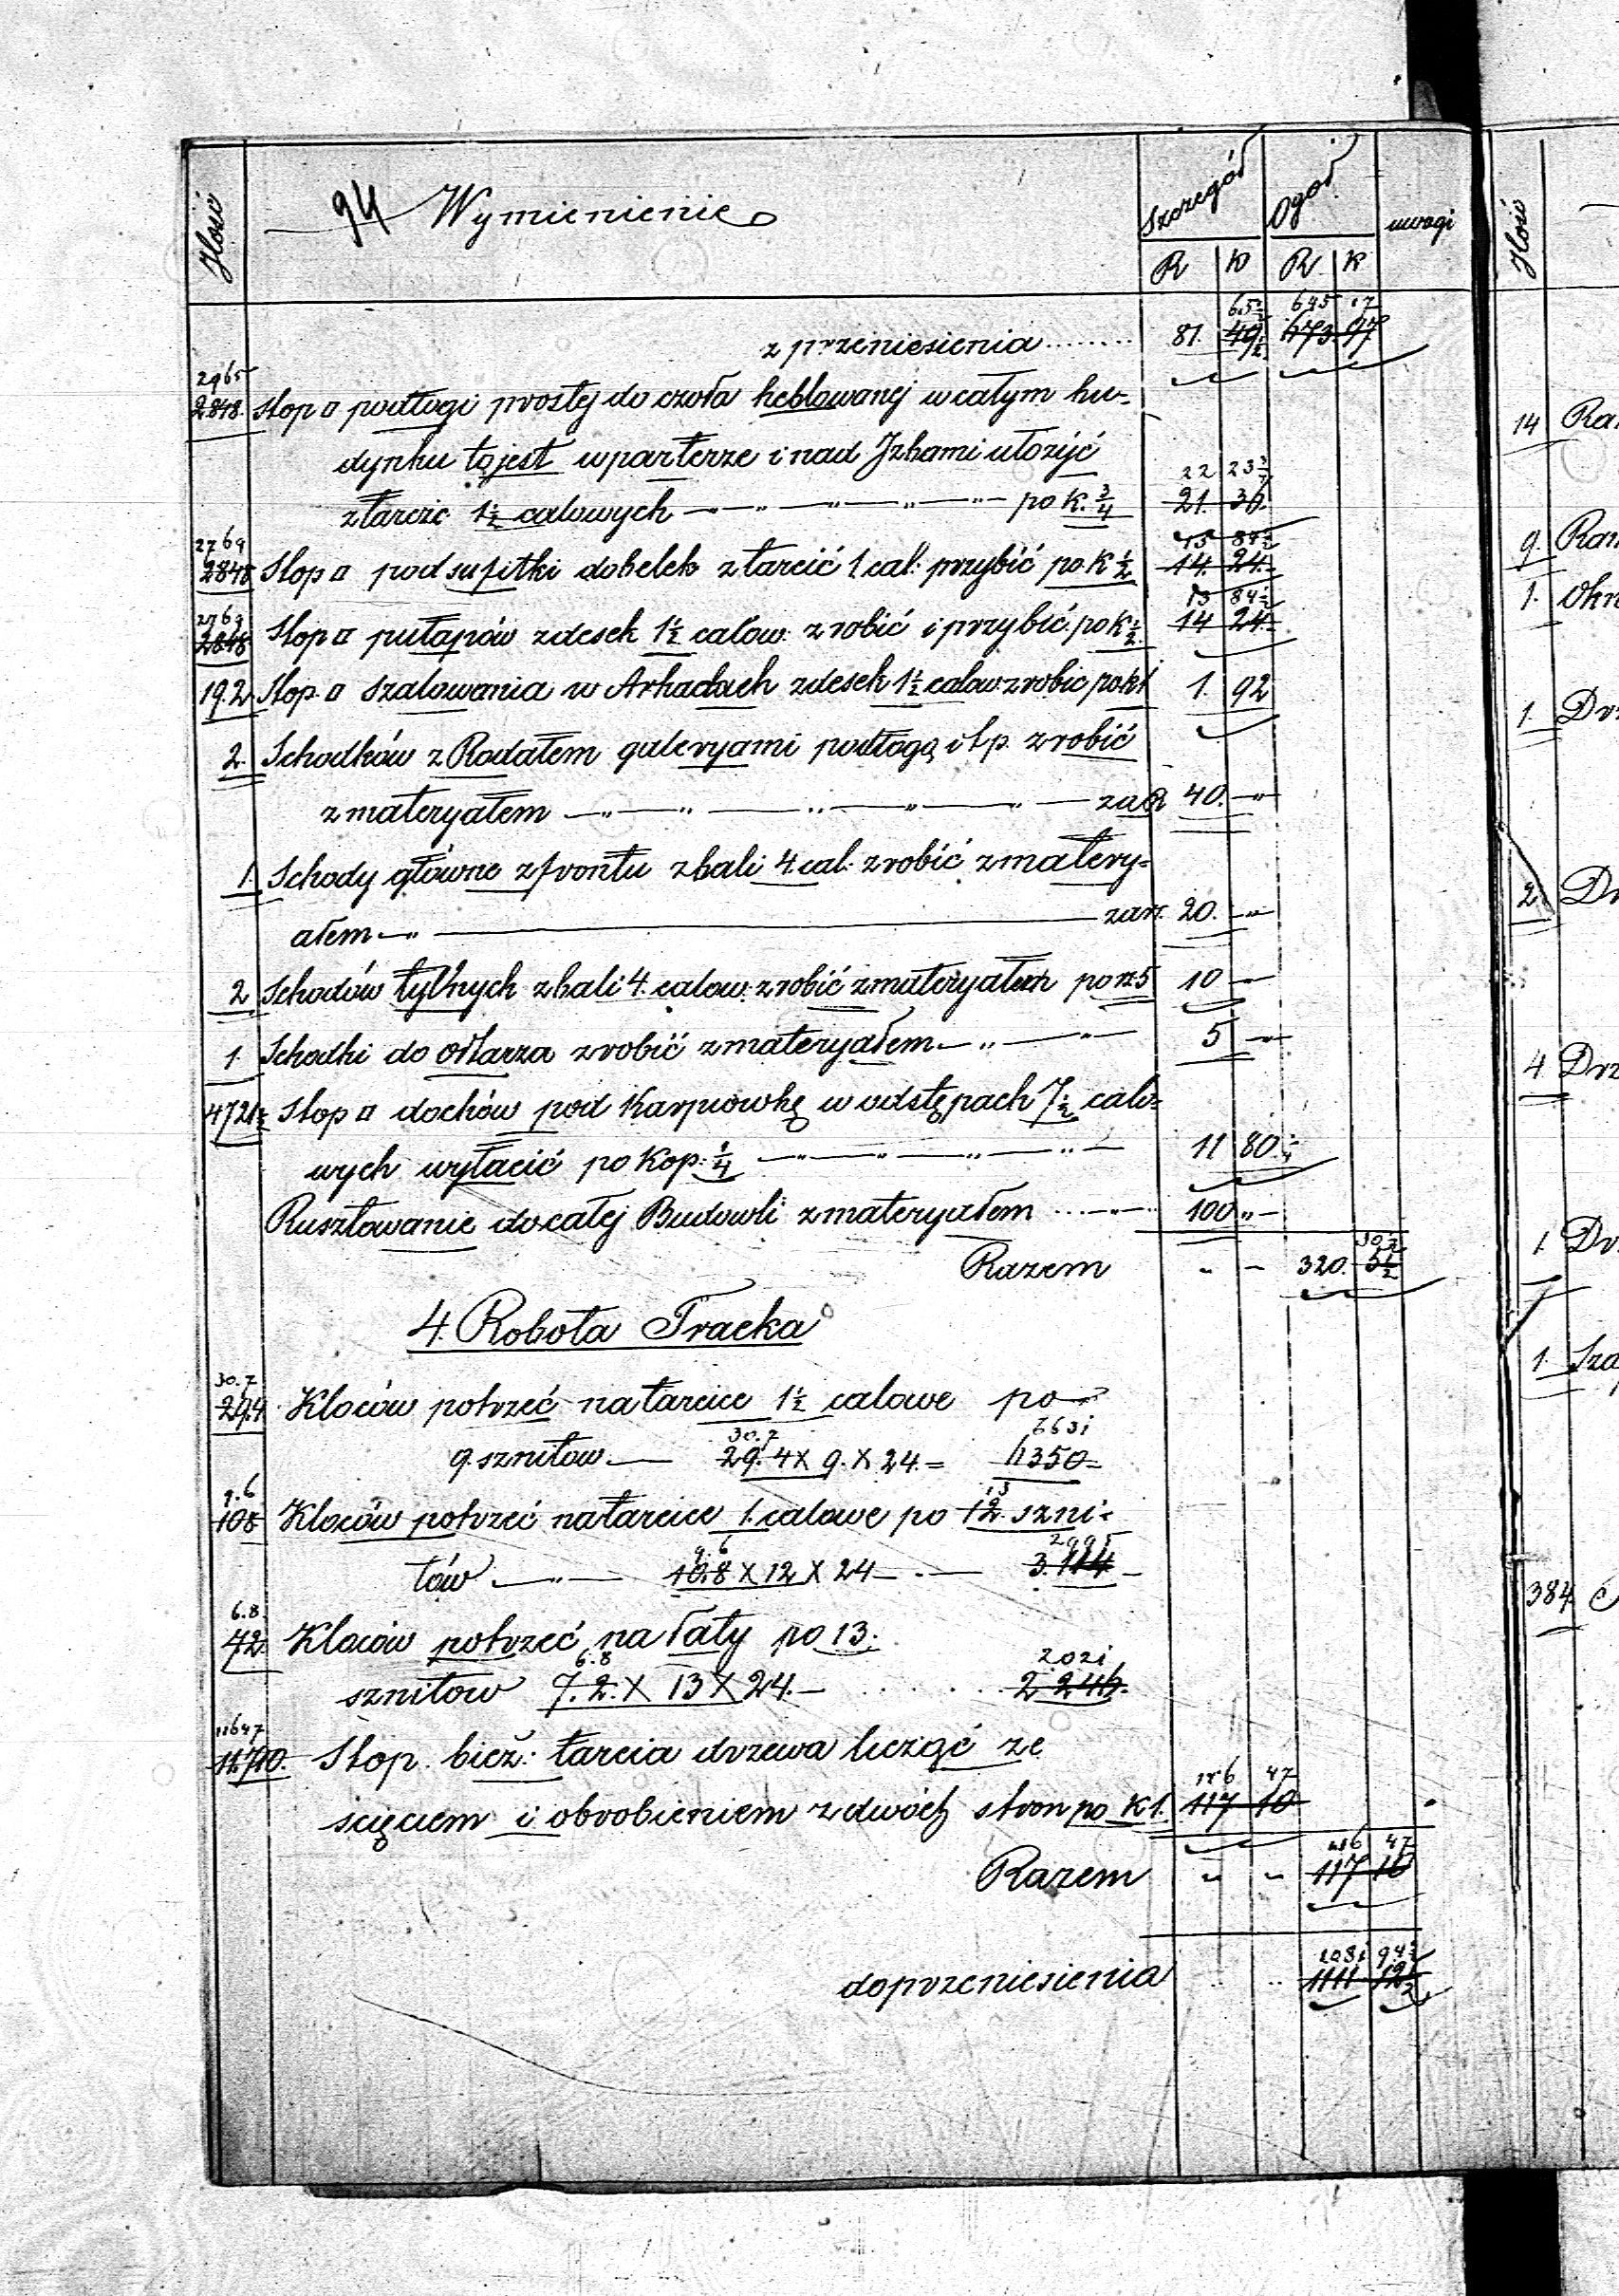 Ilość 94 Wymienienie Szczegół Ogół uwagi Ilość
R K R K
65½ 645 17
z przeniesienia ........ 81. 49½ 673. 97
2965
2848. Stop □ podłogi prostej do czoła heblowanej w całym bu-
dynku to jest w parterze i nad Izbami ułożyć
22 23¾
z tarcic 1½ calowych — „ — „ — „ — „ — po k. ¾ 21. 36.
2769 13 84½
2848 Stop □ podsufitki do belek z tarcić 1. cal: przybić po K ½ 14. 24.
2769 13 84½
2848 Stop □ pułapów z desek 1½ calow: zrobić i przybić po K ½ 14 24.
192 Stop. □ szalowania w Arkadach z desek 1½ calow zrobic po k 1 1. 92
2. Schodków z Rodałem galeryami podłogą i t p. zrobić
z materyałem — „ — „ — „ — „ — „ — za R 40. — „
1. Schody główne z frontu z bali 4. cal. zrobić z matery-
ałem — „ — za rs. 20. — „
2 Schodów tylnych z bali 4. calow: zrobić z materyałem po rs 5 10 —
1. Schodki do ołtarza zrobić z materyałem — „ — „ 5 — „
4721½ Stop □ dachów pod Karpiowkę w odstępach 7½ calo-
wych wyłacić po Kop. ¼ — „ — „ — „ — „ — 11 80.¼
Rusztowanie do całej Budowli z materyałem ... — „ — 100 „ —
Razem „ — 320. 5½
4. Robota Tracka
30.7
29.4 Kloców potrzeć na tarcice 1½ calowe po —
30.7 6631
9. sznitow. — 29.4 X 9. X 24. = 6350 =
9.6 13
108 Kloców potrzeć na tarcice 1. calowe po 12. szni-
9.6 2995
tów — „ — 10.8 X 12 X 24 — . — 3.114 —
6.8.
72 Kloców potrzeć na łaty po 13.
6.8 2021
sznitow 7.2. X 13 X 24. — . . . . . . 2 246.
11647
11.710. Stop. bież: tarcia drzewa licząc ze
116 47
ścięciem i obrobieniem z dwóch stron po K 1. 117 10
116 47
Razem „ „ 117 10
1081 94½
do przeniesienia .. .. 1111 12½
14
9.
1.
1.
2
4
1.
1.
384.